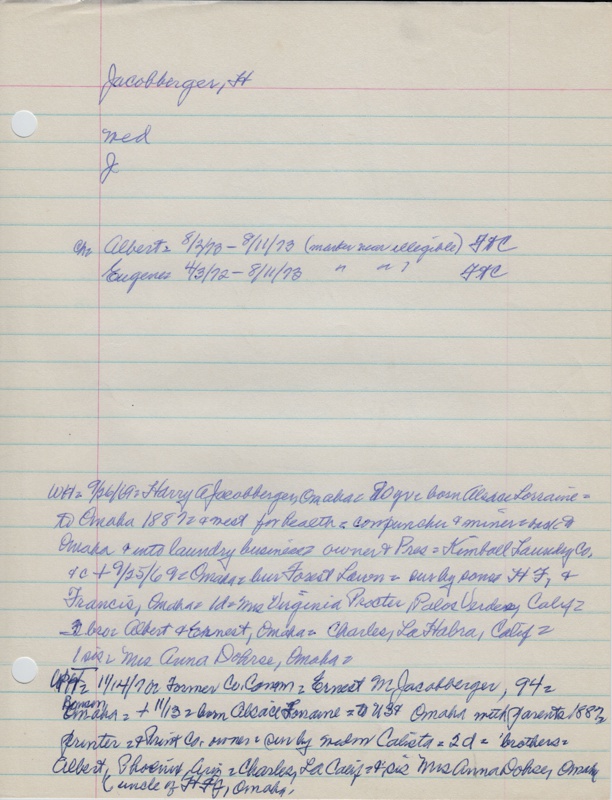 Jacobberger, H
med
J
Ch= Albert= 8/3/73 - 8/11/73 (marker near illegible) FFC
Eugene= 4/3/72 - 8/11/73 " " ? FFC
WH= 9/26/69= Harry A Jacobberger, Omaha= 80 yr= born Alsace Lorraine=
to Omaha 1887= + west for health= cowpuncher + miner= back to
Omaha + into laundry business= owner + Pres= Kimball Laundry Co,
+c + 9/25/69= Omaha= bur Forest Lawn= sur by sons H F, +
Francis, Omaha= 1d= Mrs Virginia Procter, Palos Verdes, Calif=
3 bro= Albert + Ernest, Omaha= Charles, La Habra, Calif=
1 sis= Mrs Anna Dohse, Omaha=
WH= 11/14/70= Former Co. Comm= Ernest M Jacobberger, 94=
Omaha= + 11/13= born Alsace Lorraine= to USA Omaha with parents 1887
printer= + Print Co. owner= sur by Calista= 2d= brothers=
Albert, Phoenix, Ariz= Charles, La Calif= + sis Mrs Anna Dohse, Omaha
(uncle of H F J, Omaha.